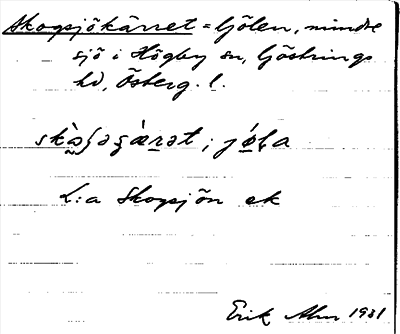 Skogsjökärret = Gölen, mindre
sjö i Högby sn, Göstrings
hd, Österg. l.
L:a Skogsjön ek
Erik 1931